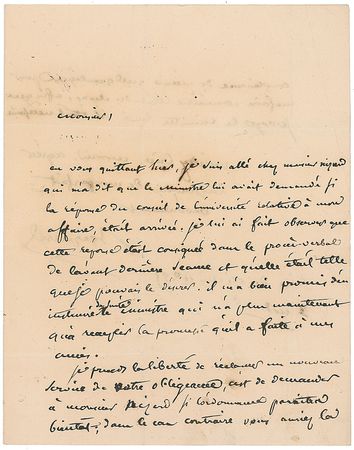 Monsieur!
en vous quittant hier, je suis allé chez monsieur
qui m'a dit que le ministre lui avait demandé si
la réponse du conseil de l'université relative à mon
affaire, était arrivée. je lui ai fait observer que
cette réponse était consignée dans le procès-verbal
de l'avant dernière séance et qu'elle était telle
que je pouvais le désirer. il m'a bien promis d'en
instruire le ministre qui n'a plus maintenant
qu'à remplir la promesse qu'il a faite à mes
amis.
je prends la liberté de réclamer un nouveau
service de votre obligeance, c'est de demander
à monsieur si l'ordonnance paraîtra
bientôt; dans le cas contraire vous auriez la